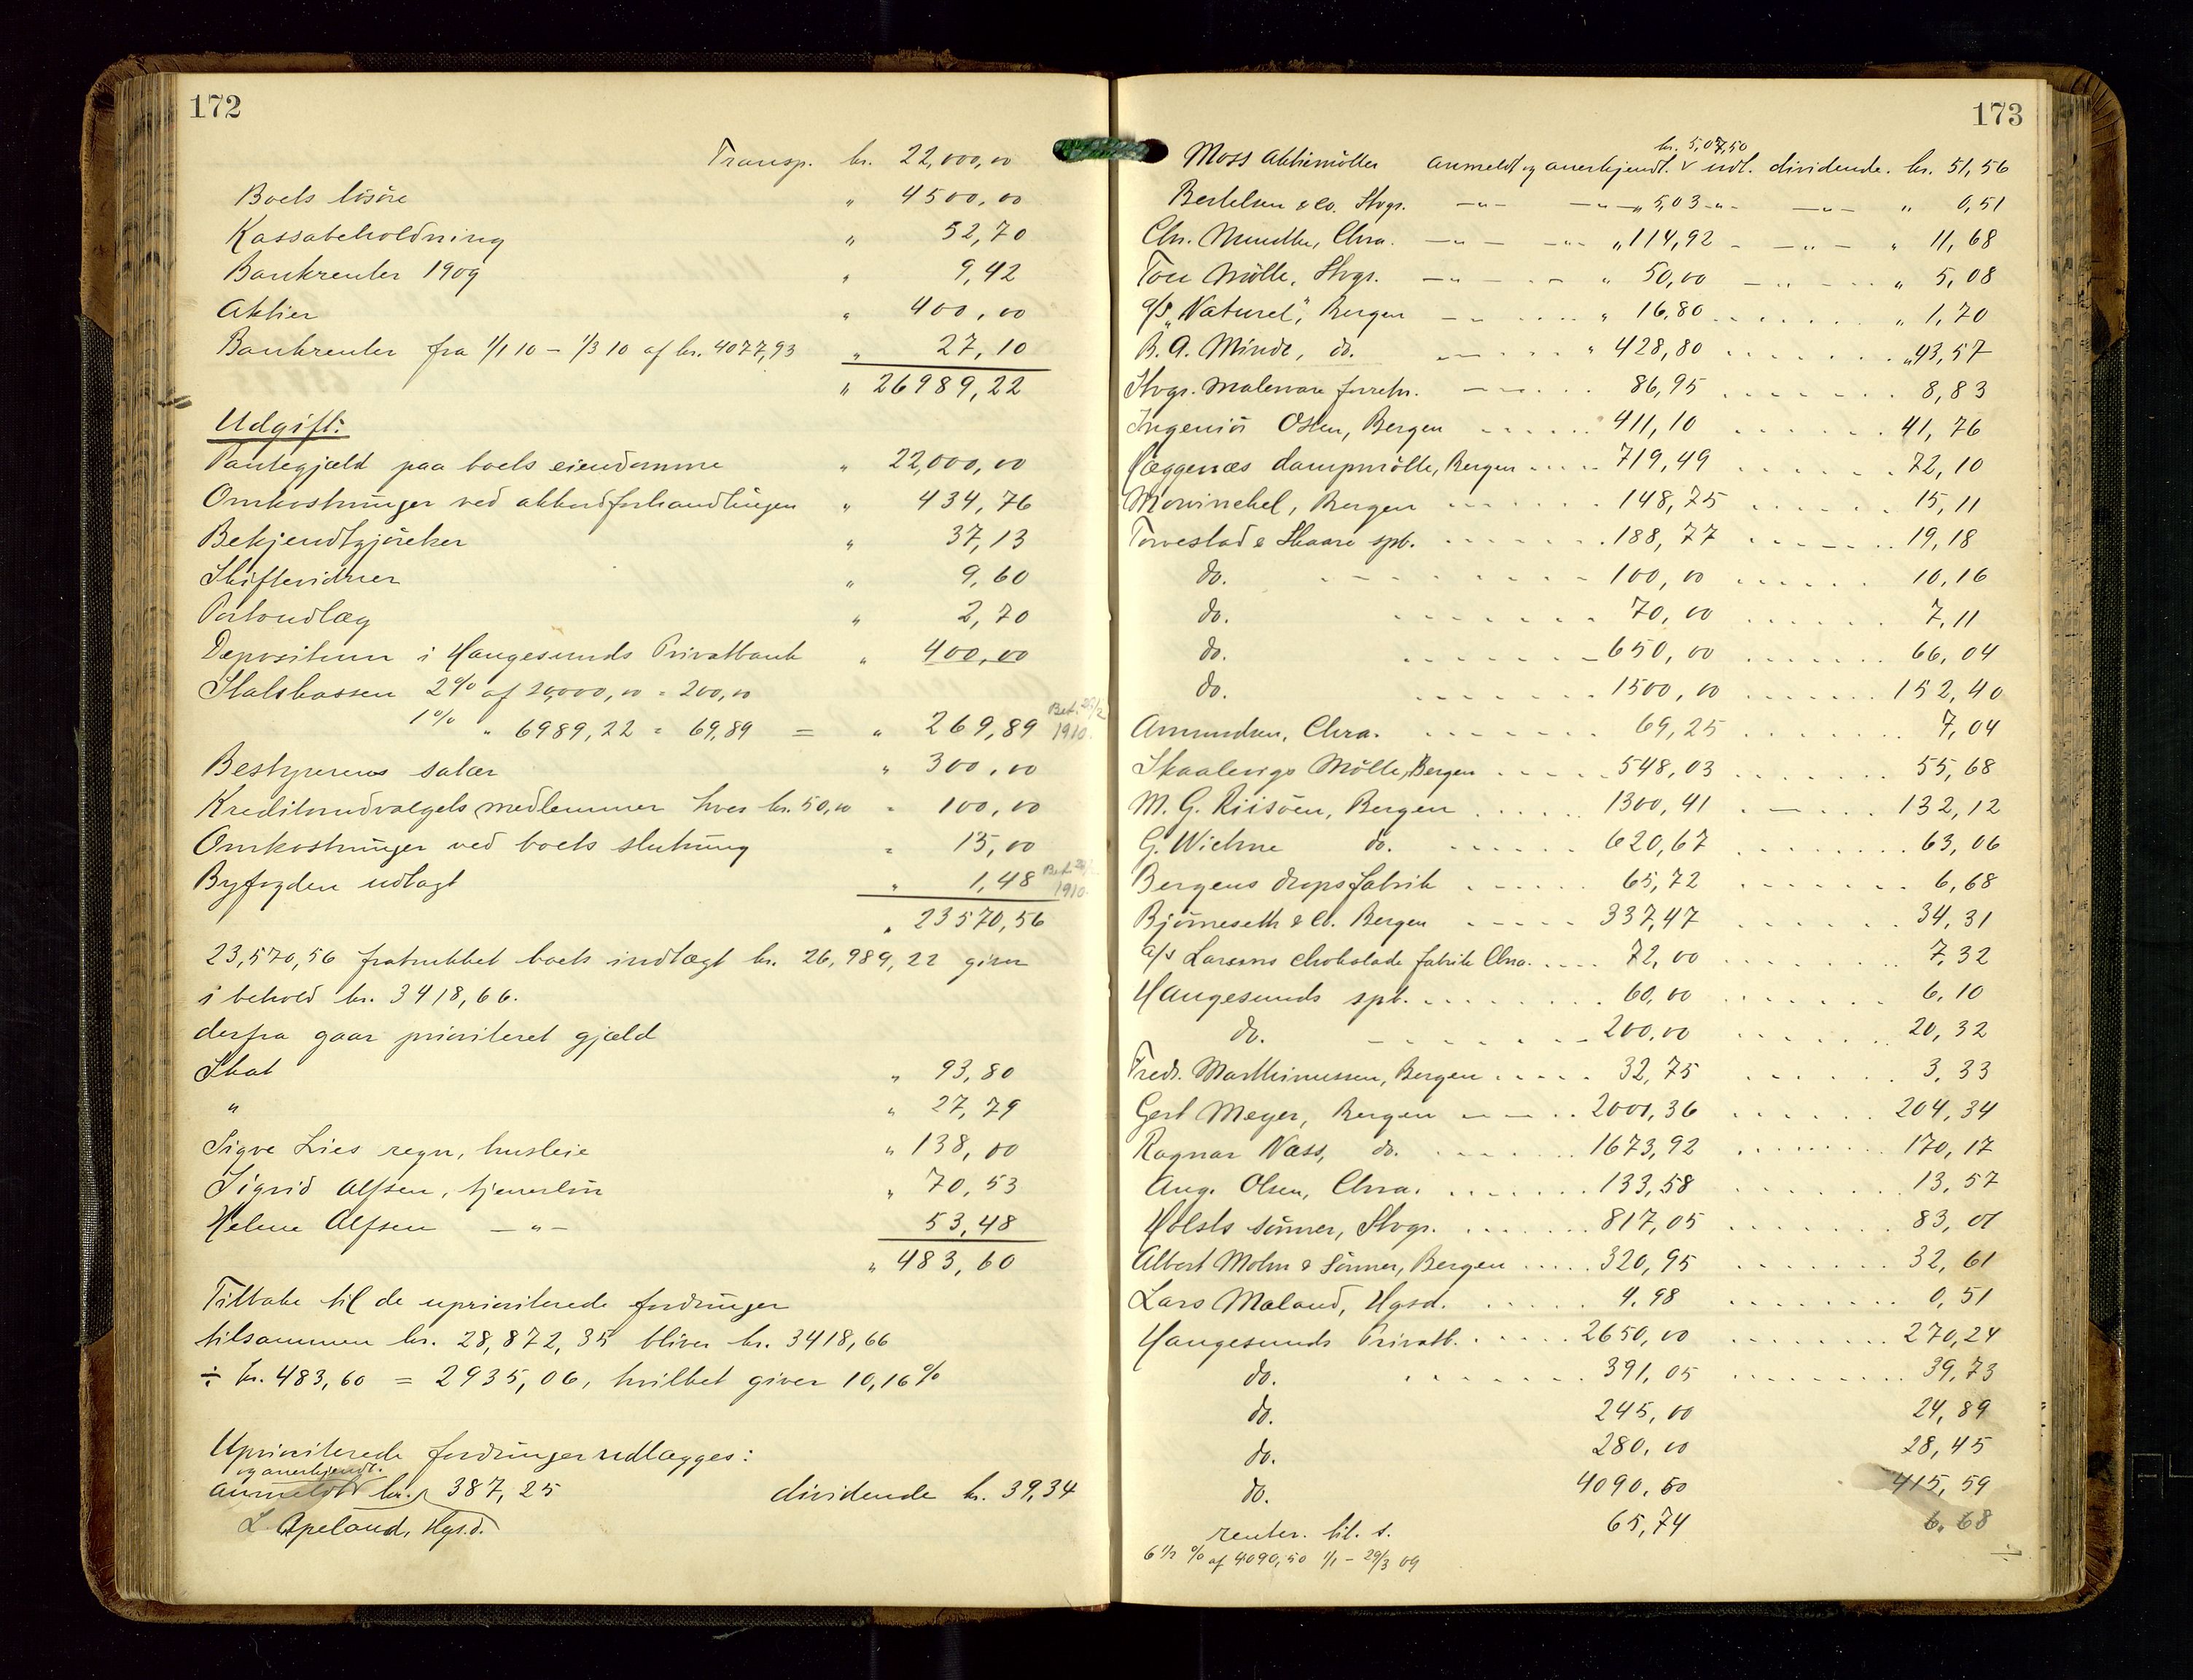 172
Transp. kr. 22,000,00
Boets løsøre " 4500,00
Kassabeholdning " 52,70
Bankrenter 1909 " 9,42
Aktier " 400,00
Bankrenter fra 1/1 10 - 1/3 10 af kr. 4077,93 " 27,10
" 26989,22
Udgift:
Pantegjæld paa boets eiendomme " 22,000,00
Omkostninger ved akkordforhandlingen " 434,76
Bekjendtgjørelser " 37,13
Skiftevidner " 9,60
Portoudlæg " 2,70
Depositum i Haugesunds Privatbank " 400,00
Statskassen 2% af 20,000,00 = 200,00
1% " 6989,22 = 69,89 = " 269,89 Bet. 1910.
Bestyrerens salær " 300,00
Kreditorudvalgets medlemmer hver kr. 50,00 " 100,00
Omkostninger ved boets slutning " 15,00
Byfogden udlagt " 1,48 Bet. 1910.
" 23570,56
23,570,56 fratrukket boets indtægt kr. 26,989,22 giver
i behold kr. 3418,66.
derfra gaar prioriteret gjæld
Skat " 93,80
" " 27,79
Sigve Lies regn, husleie " 138,00
Sigrid Alfsen, tjenerløn " 70,53
Helene Alfsen - " - 53,48
" 483,60
Tilbake til de uprioriterede fordringer
tilsammen kr. 28,872,35 bliver kr. 3418,66
÷ kr. 483,60 = 2935,06, hvilket giver 10,16%
Uprioriterede fordringer udlægges:
og anerkjendt.
anmeldt kr. 387,25 dividende kr. 39,34
L. Apeland, Hgsd.
173
kr. 5,07,50
Moss Aktiemøller anmeldt og anerkjendt. v udl. dividende. kr. 51,56
Bertelsen & Co. Stvgr. - " - - " - " 5,03 - " - - " - " 0,51
Chr. Mundtke, Chra. - " - - " - " 114,92 - - " - " 11,68
Tou Mølle, Stvgr. - " - - - " 50,00 - " - - " 5,08
A/S "Naturel", Bergen - - " 16,80 " 1,70
B. A. Minde, do. " 428,80 " 43,57
Stvgr. Malervare forretn. 86,95 8,83
Ingeniør Olsen, Bergen 411,10 41,76
Væggenæs dampmølle, Bergen 719,49 72,10
Mowinckel, Bergen 148,75 15,11
Torvestad & Skaare spb. 188,77 19,18
do. 100,00 10,16
do. 70,00 7,11
do. 650,00 66,04
do. 1500,00 152,40
Amundsen, Chra. 69,25 7,04
Skaalevigs Mølle, Bergen 548,03 55,68
M. G. Riisøen, Bergen 1300,41 132,12
G. Wiehne do. 620,67 63,06
Bergens dropsfabrik 65,72 6,68
Bjørneseth & Co. Bergen 337,47 34,31
A/S Larsens chokolade fabrik Chra. 72,00 7,32
Haugesunds spb. 60,00 6,10
do. 200,00 20,32
Fredr. Marthinussen, Bergen 32,75 3,33
Gert Meyer, Bergen 2001,36 204,34
Ragnar Næss, do. 1673,92 170,17
Aug. Olsen, Chra. 133,58 13,57
Holsts sønner, Stvgr. 817,05 83,01
Albert Mohn & Sønner, Bergen 320,95 32,61
Lars Maland, Hgsd. 4,98 0,51
Haugesunds Privatb. 2650,00 270,24
do. 391,05 39,73
do. 245,00 24,89
do. 280,00 28,45
do. 4090,50 415,59
renter. til. s. 65,74 6,68
6 1/2 % af 4090,50 1/1 - 29/3 09